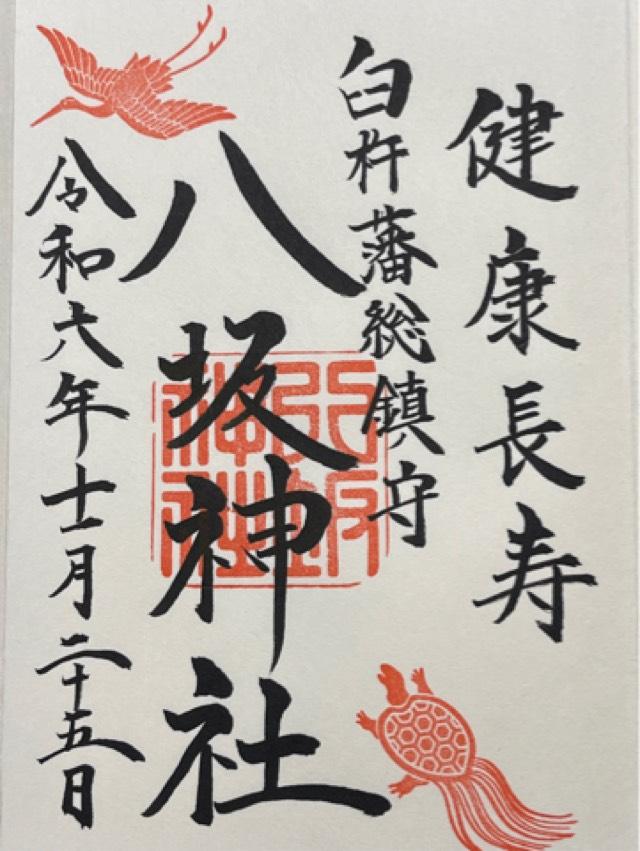 健康長寿
臼杵藩総鎮守
八坂神社
八坂神社
令和六年十一月二十五日